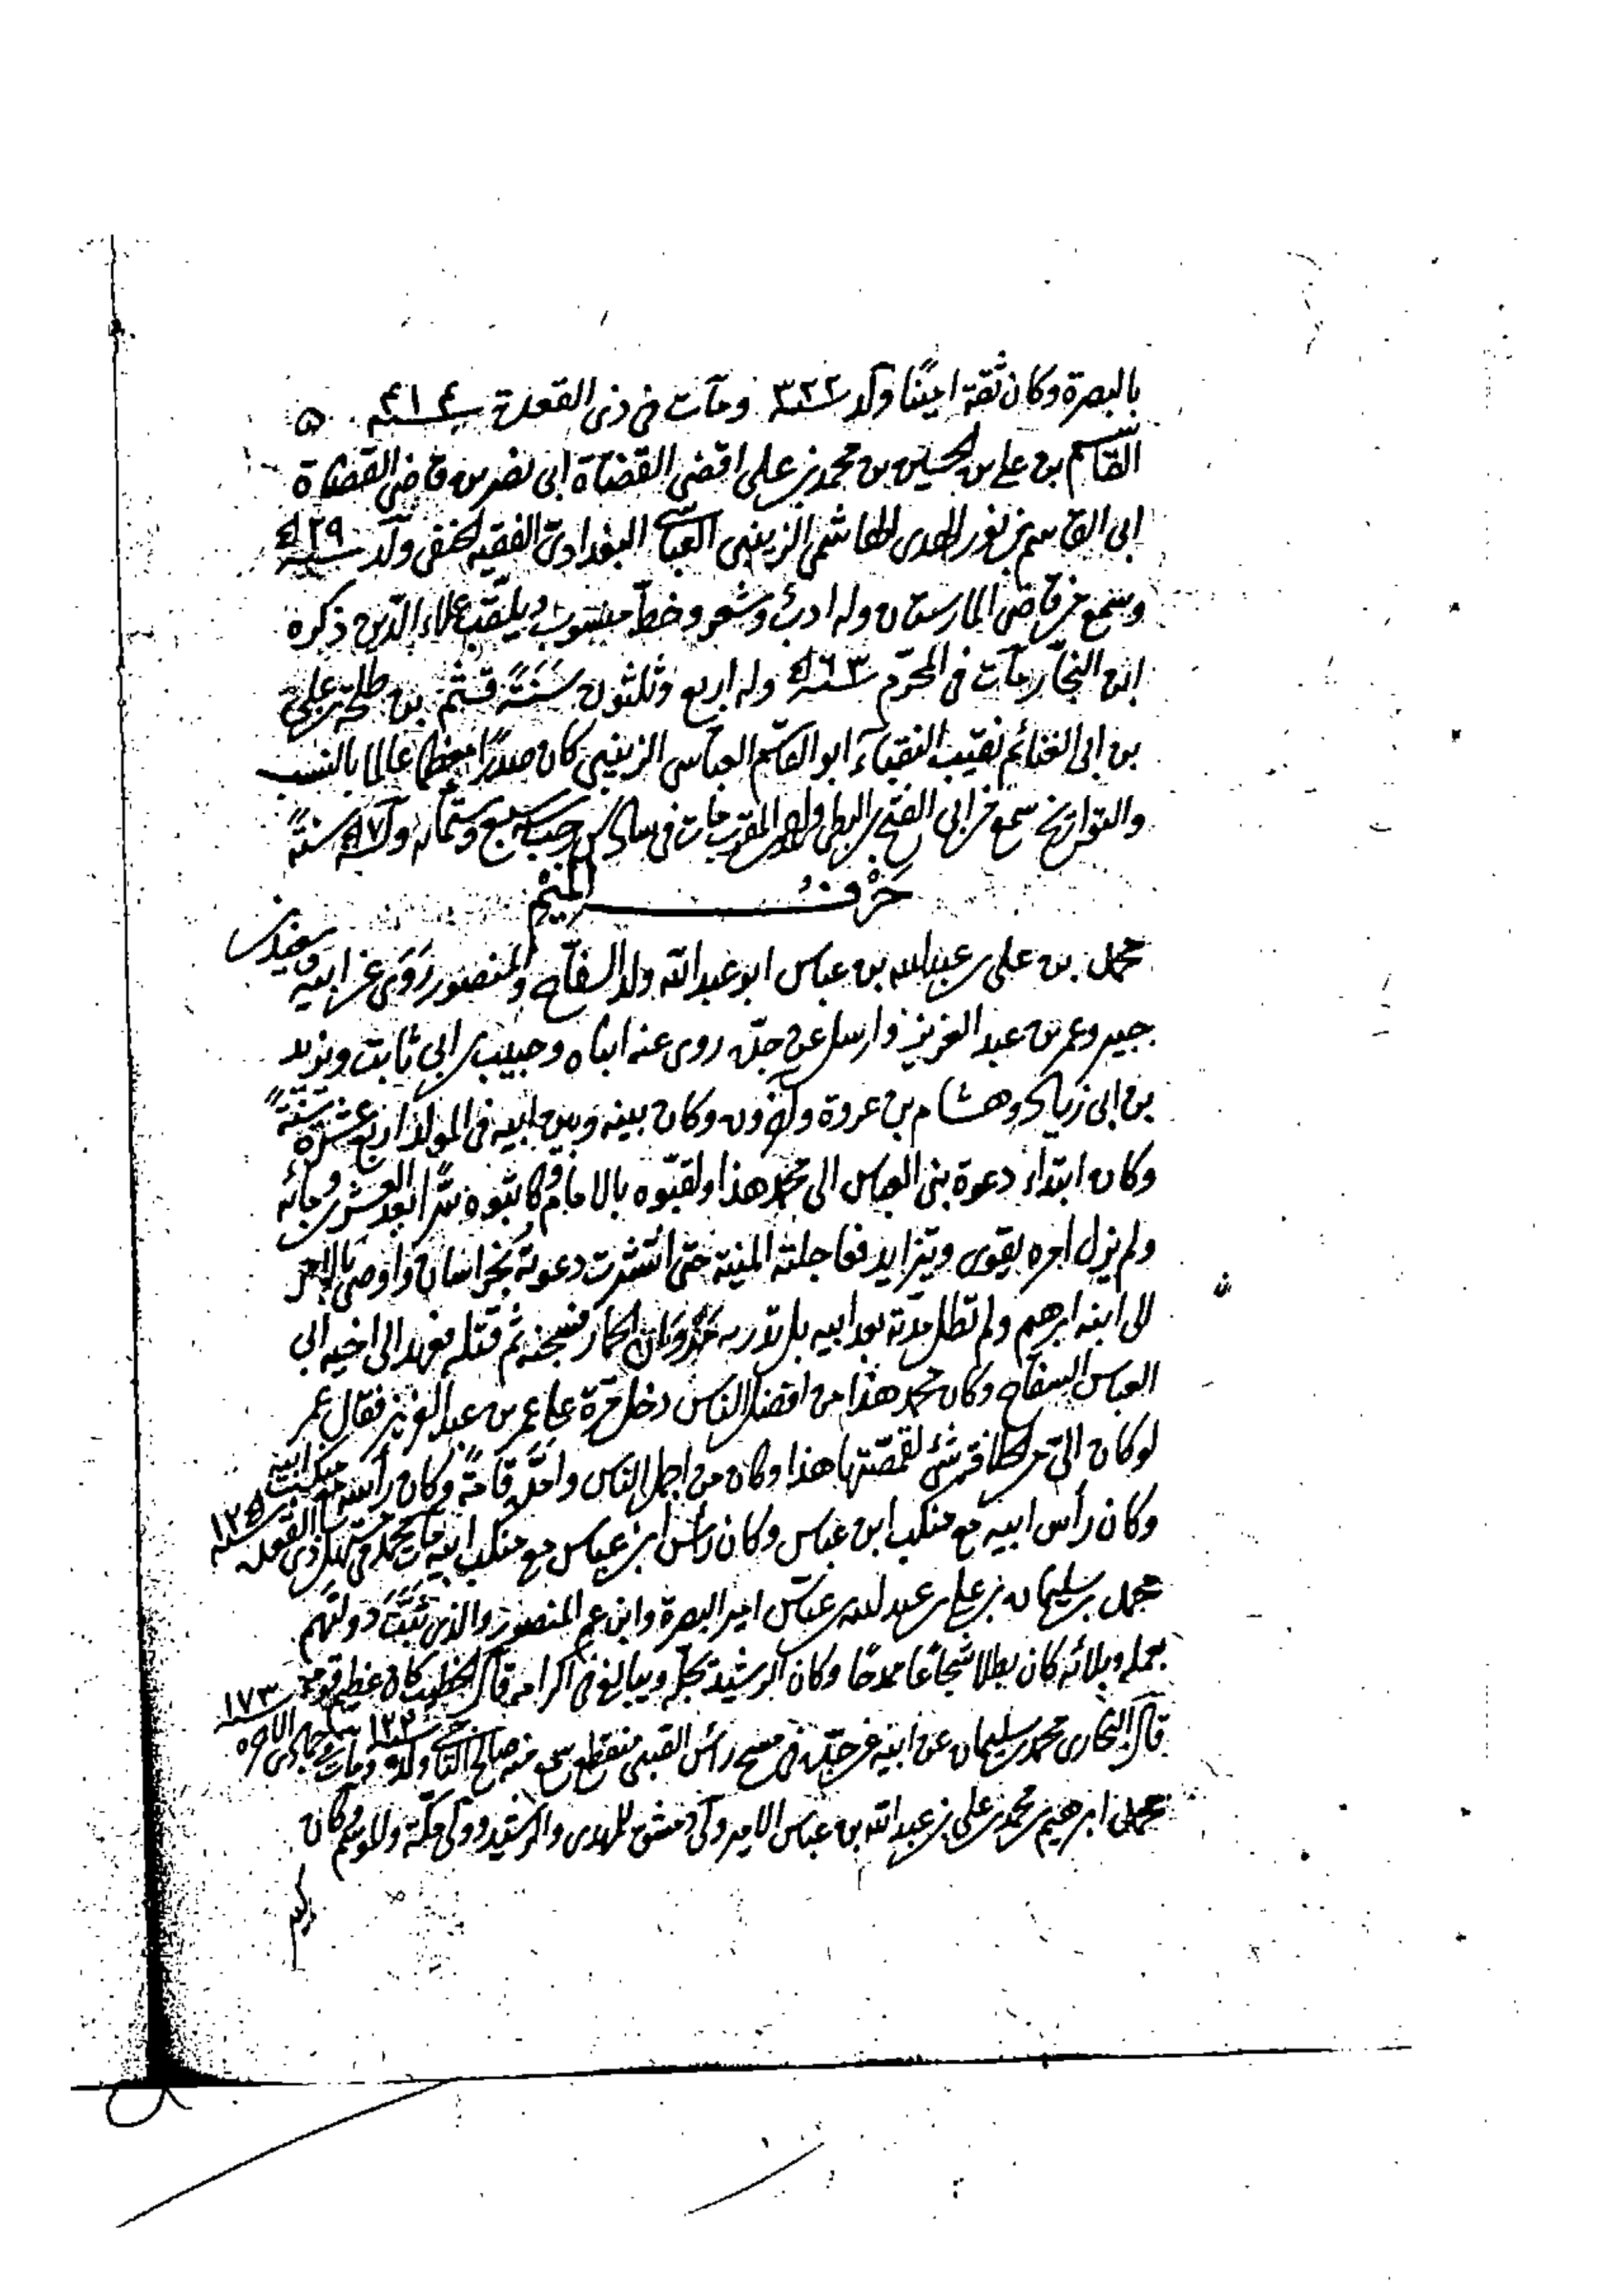 بالبصرة وكان ثقة امينًا ولد سنة ٣٢٢ ومات فى ذى القعدة سنة ٤١٤
القاسم بن على بن الحسين بن محمد بن على اقضى القضاة ابى نصر بن قاضى القضاة
ابى القاسم بن نور الهدى الهاشمى الزينبى العباسى البغدادى الفقيه الحنفى ولد سنة ٥٢٩
وسمع من قاضى المارستان وله ادب وشعر وخط منسوب ويلقب علاء الدين ذكره
ابن النجار مات فى المحرم سنة ٥٦٣ وله اربع وثلثون سنة قثم بن طلحة بن على
بن ابى الغنائم نقيب النقباء ابو القاسم العباسى الزينبى كان صدرًا معظما عالما بالنسب
والتواريخ سمع من ابى الفتح بن البطى مات فى سادس رجب سنة سبع وستمائة وله سنة
حَرْفُ الميْم
محمد بن على بن عبد الله بن عباس ابو عبد الله ولد السفاح والمنصور رَوَى عن ابيه وسعيد بن
جبير وعمر بن عبد العزيز وارسل عن جده روى عنه ابناه وحبيب بن ابى ثابت ويزيد
بن ابى زياد وهشام بن عروة وآخرون وكان بينه وبين ابيه فى المولد اربع عشرة سنةً
وكان ابتداء دعوة بنى العباس الى محمد هذا ولقبّوه بالامام وكاتبوه سرًّا بعد العشرين ومائه
ولم يزل امره يقوى ويتزايد فعاجلته المنية حتى انتشرت دعوته بخراسان واوصى بالامر
الى ابنه ابرهيم ولم تطل مدّته بعد ابيه بل بدر به مروان الحمار فسجنه ثم قتله فعهد الى اخيه ابى
العباس السفاح وكان محمد هذا من افضل الناس دخل مرة على عمر بن عبد العزيز فقال عمر
لو كان الىّ من الخلافة شئ لقمصتها هذا وكان من اجمل الناس وامدّه قامةً وكان رأسه مع منكب ابيه
وكان رأس ابيه مع منكب ابن عباس وكان رأس ابن عباس مع منكب ابيه مات محمد فى مستهل ذى القعدة سنة ١٢٥
محمد بن سليمان بن على بن عبد الله بن عباس امير البصرة وابن عم المنصور والذى ثبّتَ دولتهم
بعمله وبلائه كان بطلا شجاعًا ممدحًا وكان الرشيد يجلّه ويبالغ فى اكرامه قال الخطيب كان عظيم قومه
قال البخارى محمد بن سليمان عن ابيه عن جده فى مسح رأس الصبى منقطع سمع منه صالح الناجى ولد سنة ١٢٢ ومات فى جمادى الآخرة سنة ١٧٣
محمد بن ابرهيم بن محمد بن على بن عبد الله بن عباس الامير ولى دمشق للمهدى والرشيد وولى مكة والموسم وكان